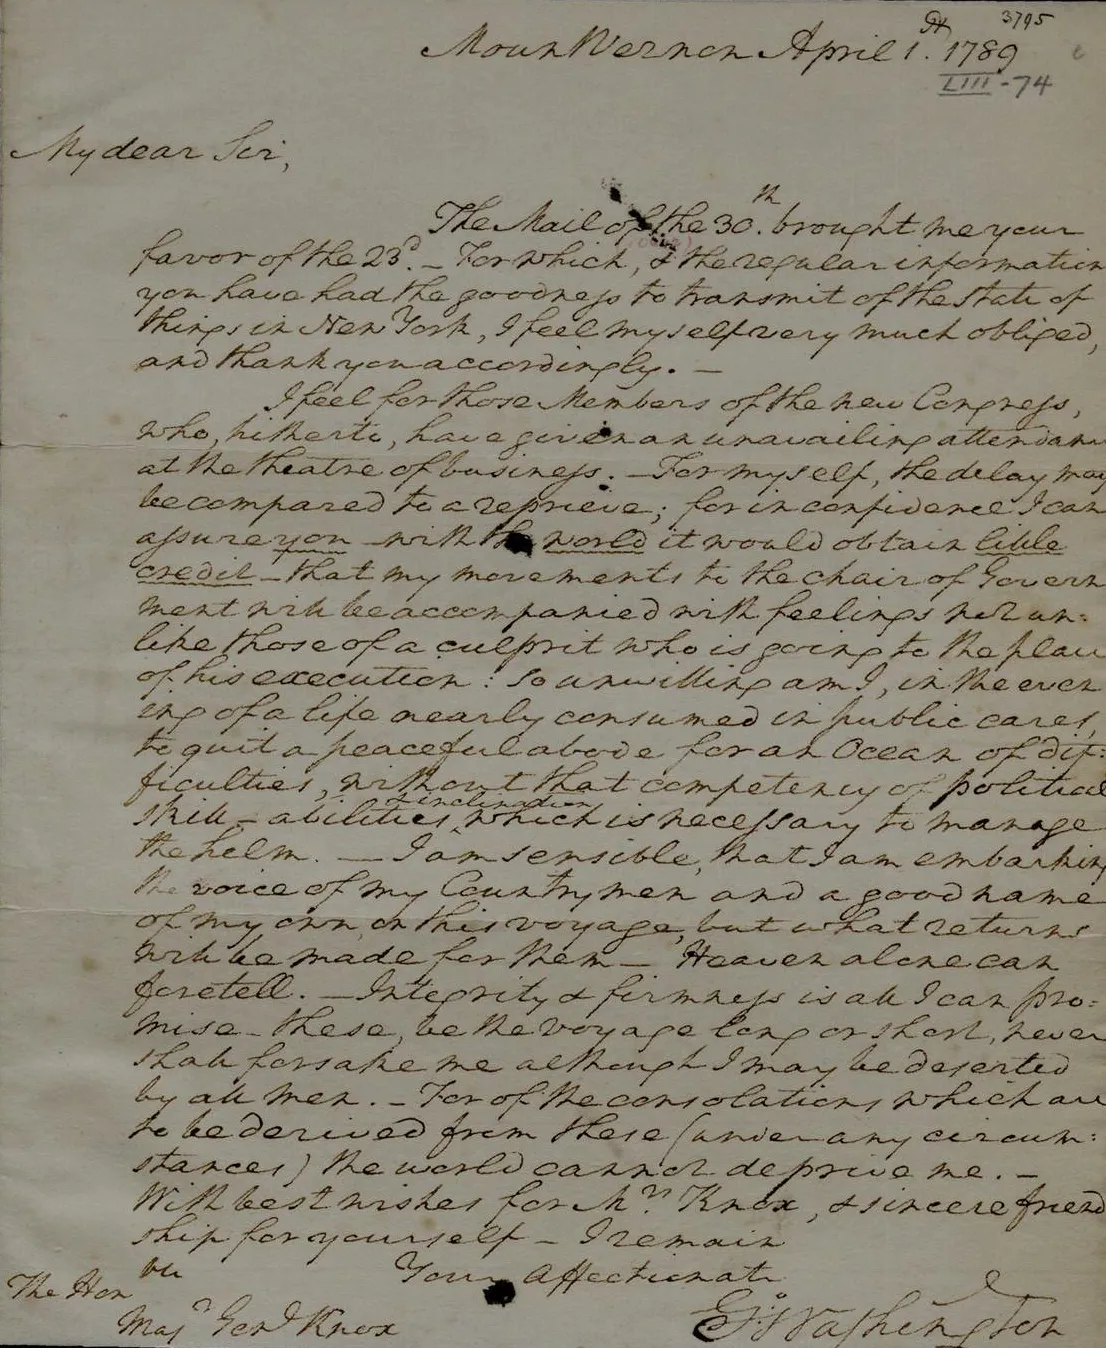 3795
Mount Vernon April 1st. 1789
LIII-74
My dear Sir,
The Mail of the 30th. brought me your
favor of the 23d. — For which, & the regular information
you have had the goodness to transmit of the state of
things in New York, I feel myself very much obliged,
and thank you accordingly. —
I feel for those Members of the new Congress,
who, hitherto, have given an unavailing attendance
at the theatre of business. — For myself, the delay may
be compared to a reprieve; for in confidence I can
assure you — with the world it would obtain little
credit — that my movements to the chair of Govern
ment will be accompanied with feelings not un:
like those of a culprit who is going to the place
of his execution: so unwilling am I, in the even
ing of a life nearly consumed in public cares,
to quit a peaceful abode for an Ocean of dif:
ficulties, without that competency of political
& inclination
skill – abilities, which is necessary to manage
the helm. — I am sensible, that I am embarking
the voice of my Countrymen and a good name
of my own, on this voyage, but what returns
will be made for them — Heaven alone can
foretell. — Integrity & firmness is all I can pro:
mise – these, be the voyage long or short, never
shall forsake me although I may be deserted
by all men. — For of the consolations which are
to be derived from these (under any circum:
stances) the world cannot deprive me. —
With best wishes for Mrs. Knox, & sincere friend
ship for yourself — I remain
Your Affectionate
The Honble
Majr Genl Knox
Go: Washington